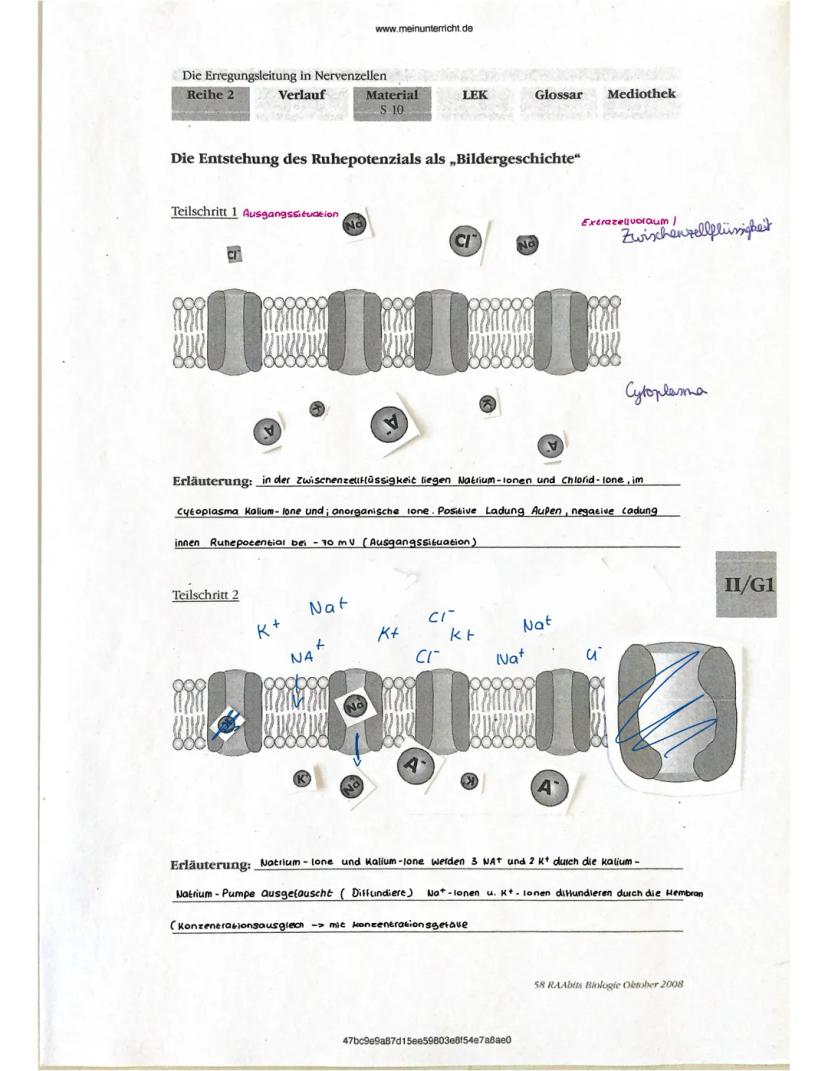 www.meinunterricht.de
Die Erregungsleitung in Nervenzellen
Reihe 2 Verlauf Material LEK Glossar Mediothek
S 10
Die Entstehung des Ruhepotenzials als „Bildergeschichte“
Teilschritt 1 Ausgangssituation
Na
Extrazellulraum /
Zwischenzellflüssigkeit
Cl⁻ Cl⁻ Na
Cytoplasma
K A⁻ K
A⁻ A⁻
Erläuterung: in der Zwischenzellflüssigkeit liegen Natrium-Ionen und Chlorid-Ione, im
Cytoplasma Kalium-Ione und; anorganische Ione. Positive Ladung Außen, negative Ladung
innen Ruhepotential bei -70 mV (Ausgangssituation)
II/G1
Teilschritt 2
K⁺ Na+ K+ Cl⁻ K+ Na+
NA⁺ Cl⁻ Na⁺ Cl⁻
Na
K⁺ Na A⁻ K A⁻
Erläuterung: Natrium-Ione und Kalium-Ione werden 3 NA⁺ und 2 K⁺ durch die Kalium-
Natrium-Pumpe ausgetauscht (Diffundiere) Na⁺-Ionen u. K⁺-Ionen diffundieren durch die Membran
(Konzenerationsausgleich -> mit Konzentrationsgefälle
58 RAAbits Biologie Oktober 2008
47bc9e9a87d15ee59803e8f54e7a8ae0